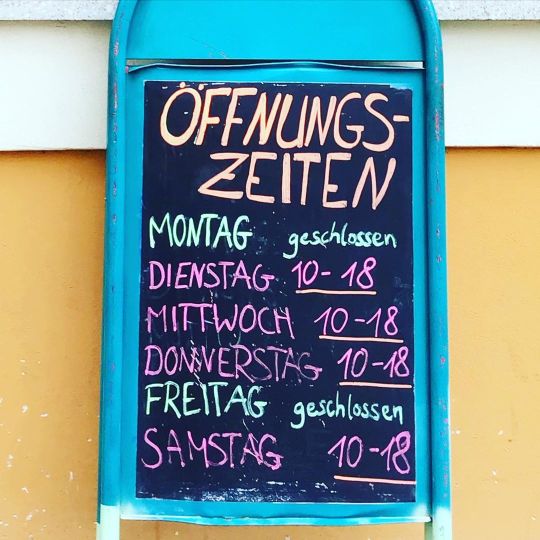 ÖFFNUNGS-
ZEITEN
MONTAG geschlossen
DIENSTAG 10-18
MITTWOCH 10-18
DONNERSTAG 10-18
FREITAG geschlossen
SAMSTAG 10-18